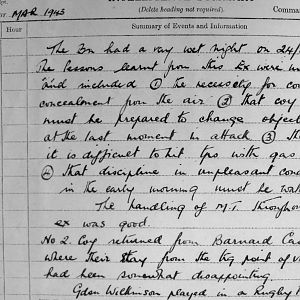 MAR 1943
(Delete heading not required).
Comma
Hour
Summary of Events and Information
The Bn had a very wet night on 24/
The lessons learnt from this Ex were
and included ① the necessity for con
concealment from the air. ② that coy
must be prepared to change objecti
at the last moment in attack ③ th
it is difficult to hit tps with gas.
④ that discipline in unpleasant cond
in the early morning must be
The handling of M.T. through
ex was good.
No 2 Coy returned from Barnard Cas
where their stay from the trg point of v
had been somewhat disappointing.
Gdsn Wilkinson played in a Rugby